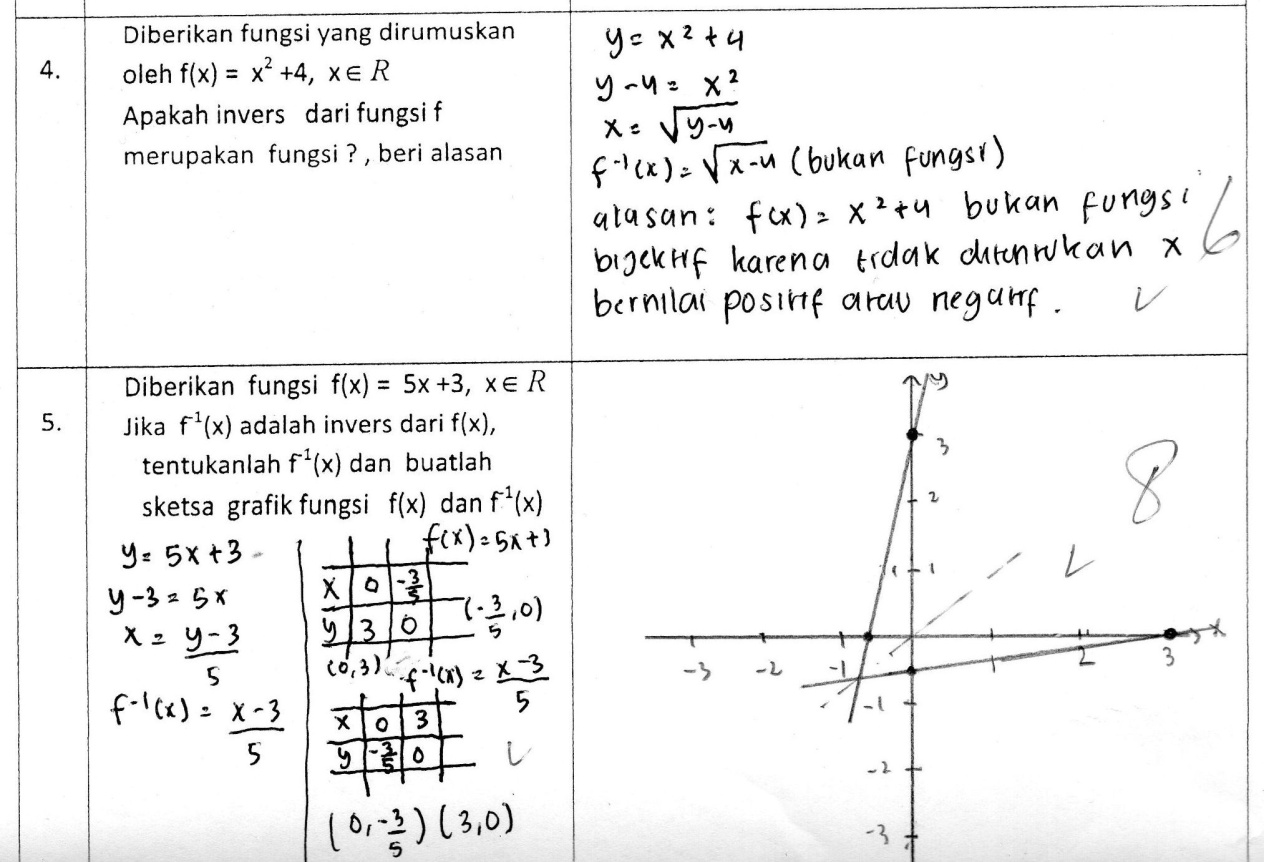 4.
Diberikan fungsi yang dirumuskan
oleh f(x) = x² +4, x∈ R
Apakah invers dari fungsi f
merupakan fungsi ? , beri alasan
y = x² + 4
y - 4 = x²
x = √y-4
f⁻¹(x) = √x-4 (bukan fungsi)
alasan: f(x) = x²+4 bukan fungsi
bijektif karena tidak ditentukan x
bernilai positif atau negatif.
6
5.
Diberikan fungsi f(x) = 5x +3, x∈ R
Jika f⁻¹(x) adalah invers dari f(x),
tentukanlah f⁻¹(x) dan buatlah
sketsa grafik fungsi f(x) dan f⁻¹(x)
y = 5x + 3
y - 3 = 5x
x = (y-3)/5
f⁻¹(x) = (x-3)/5
f(x) = 5x+3
x 0 -3/5
y 3 0
(0,3) (-3/5,0)
f⁻¹(x) = (x-3)/5
x 0 3
y -3/5 0
(0,-3/5) (3,0)
y
3
2
1
-3 -2 -1 1 2 3 x
-1
-2
-3
8